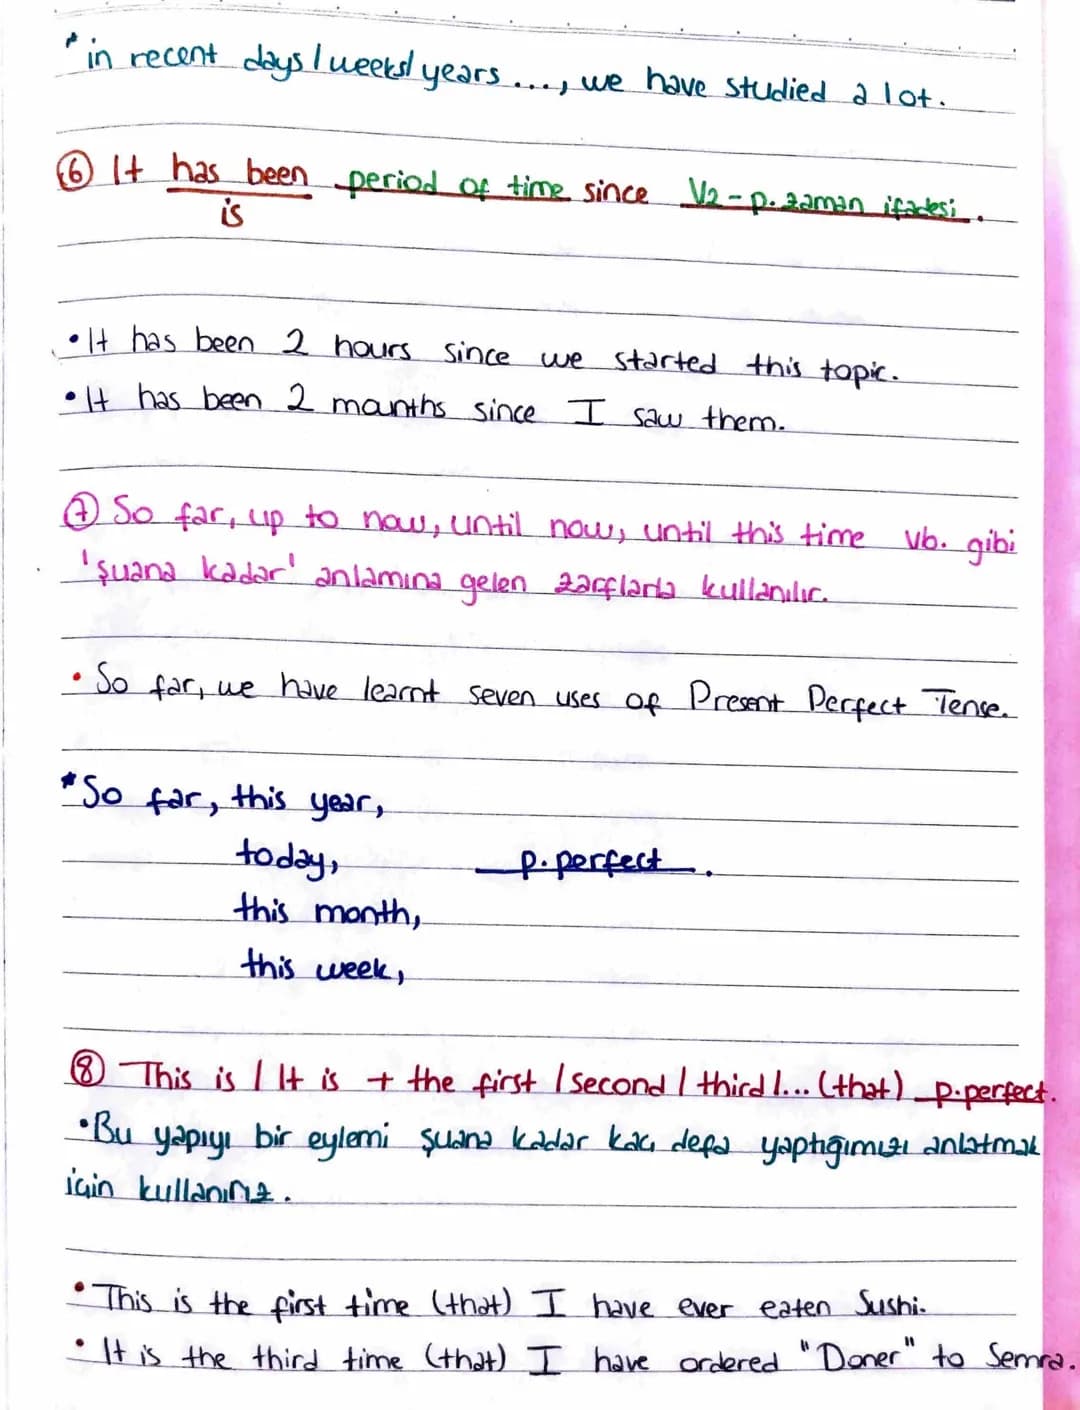 * in recent days / weeks / years ..., we have studied a lot.
⑥ It has been period of time since V2 - p. zaman ifadesi.
is
• It has been 2 hours since we started this topic.
• It has been 2 mounths since I saw them.
⑦ So far, up to now, until now, until this time vb. gibi
'şuana kadar' anlamına gelen zarflarla kullanılır.
• So far, we have learnt seven uses of Present Perfect Tense.
* So far, this year,
today, p. perfect.
this month,
this week,
⑧ This is / It is + the first / second / third / ... (that) p. perfect.
• Bu yapıyı bir eylemi şuana kadar kaç defa yaptığımızı anlatmak
için kullanırız.
• This is the first time (that) I have ever eaten Sushi.
• It is the third time (that) I have ordered "Doner" to Semra.